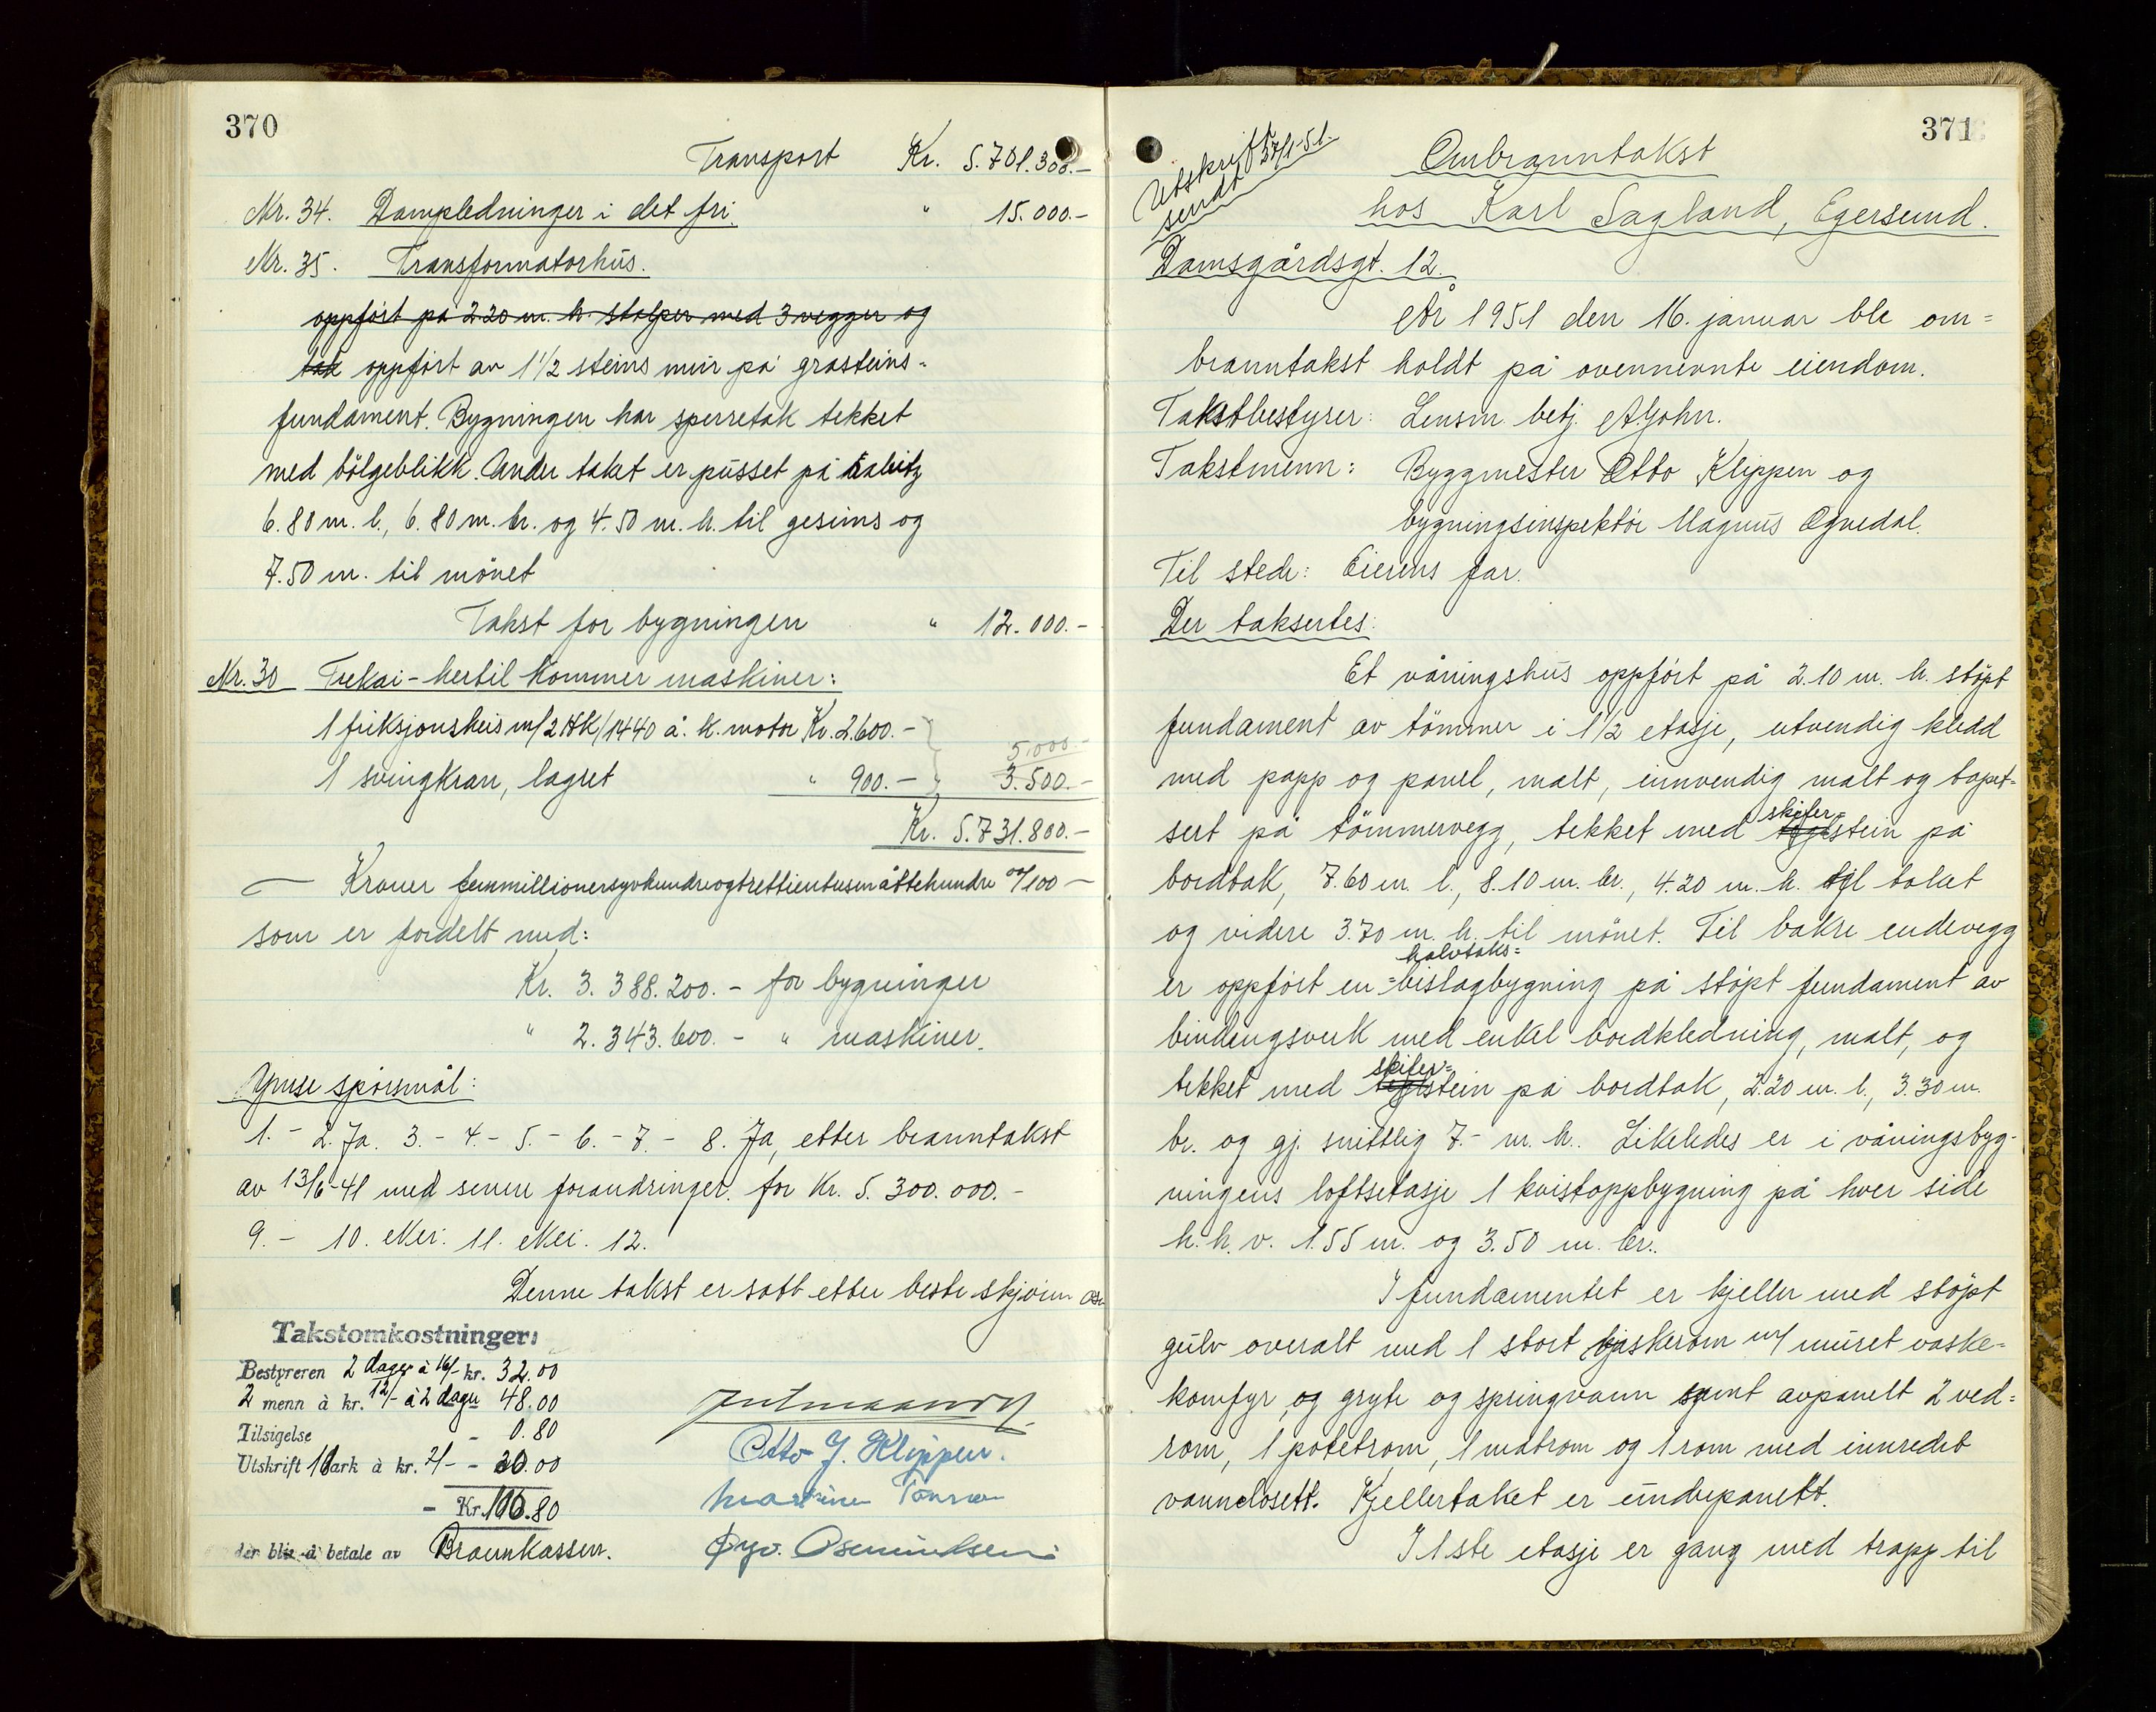 370
Transport Kr. 5.701.300.-
Nr. 34. Dampledninger i det fri. " 15.000.-
Nr. 35. Transformatorhus.
oppført på 2.20 m. h. stolper med 3 vegger og
tak oppført av 1 1/2 steins mur på grasteins-
fundament. Bygningen har sperretak tekket
med bølgeblikk. Under taket er pusset på rabitz
6.80 m. l., 6.80 m. br. og 4.50 m. h. til gesims og
7.50 m. til mønet
Takst for bygningen " 12.000.-
Nr. 30 Trekai - hertil kommer maskiner:
1 friksjonsheis m/2 HK/1440 o. k. motor Kr. 2.600.-
5.000.-
1 svingkran, lagret " 900.- " 3.500.-
Kr. 5.731.800.-
- Kroner femmillionersyvhundreogtrettientusenåttehundre 00/100 -
som er fordelt med:
Kr. 3.388.200.- for bygninger
" 2.343.600.- " maskiner.
Ymse spørsmål:
1. - 2. Ja. 3. - 4. - 5. - 6. - 7. - 8. Ja, etter branntakst
av 13/6-41 med senere forandringer. for Kr. 5.300.000.-
9. - 10. Nei. 11. Nei. 12.
Denne takst er satt etter beste skjønn
Takstomkostninger:
Bestyreren 2 dager à 16/- kr. 32.00
2 menn à kr. 12/- à 2 dager 48.00
Tilsigelse - 0.80
Utskrift ark à kr. 2/- - 20.00
- Kr. .80
der blir å betale av Brannkassen.
Otto J. Klippen.
371
Utskrift
sendt 27/1-51-
Ombranntakst
hos Karl Sagland, Egersund.
Damsgårdsgt. 12.
År 1951 den 16. januar ble om=
branntakst holdt på ovennevnte eiendom.
Takstbestyrer: Lensm. betj. A. Gohn.
Takstmenn: Byggmester Otto Klippen og
bygningsinspektør Magnus Ognedal.
Til stede: Eierens far.
Der taksertes:
Et våningshus oppført på 2.10 m. h. støpt
fundament av tømmer i 1 1/2 etasje, utvendig kledd
med papp og panel, malt, innvendig malt og tapet=
skifer=
sert på tømmervegg, tekket med teglstein på
bordtak, 7.60 m. l., 8.10 m. br., 4.20 m. h. til taket
og videre 3.70 m. h. til mønet. Til bakre endevegg
halvtaks=
er oppført en =bislagbygning på støpt fundament av
bindingsverk med enkel bordkledning, malt, og
skifer=
tekket med teglstein på bordtak, 2.20 m. l., 3.30 m.
br. og gj. snittlig 7.- m. h.. Likeledes er i våningsbyg-
ningens loftsetasje 1 kvistoppbygning på hver side
h. h. v. 1.55 m. og 3.50 m. br..
I fundamentet er kjeller med støpt
gulv overalt med 1 stort vaskerom m/ muret vaske-
komfyr og gryte og springvann samt avpanelt 2 ved=
rom, 1 potetrom, 1 matrom og 1 rom med innredet
vannclosett. Kjellertaket er underpanelt.
I 1ste etasje er gang med trapp til